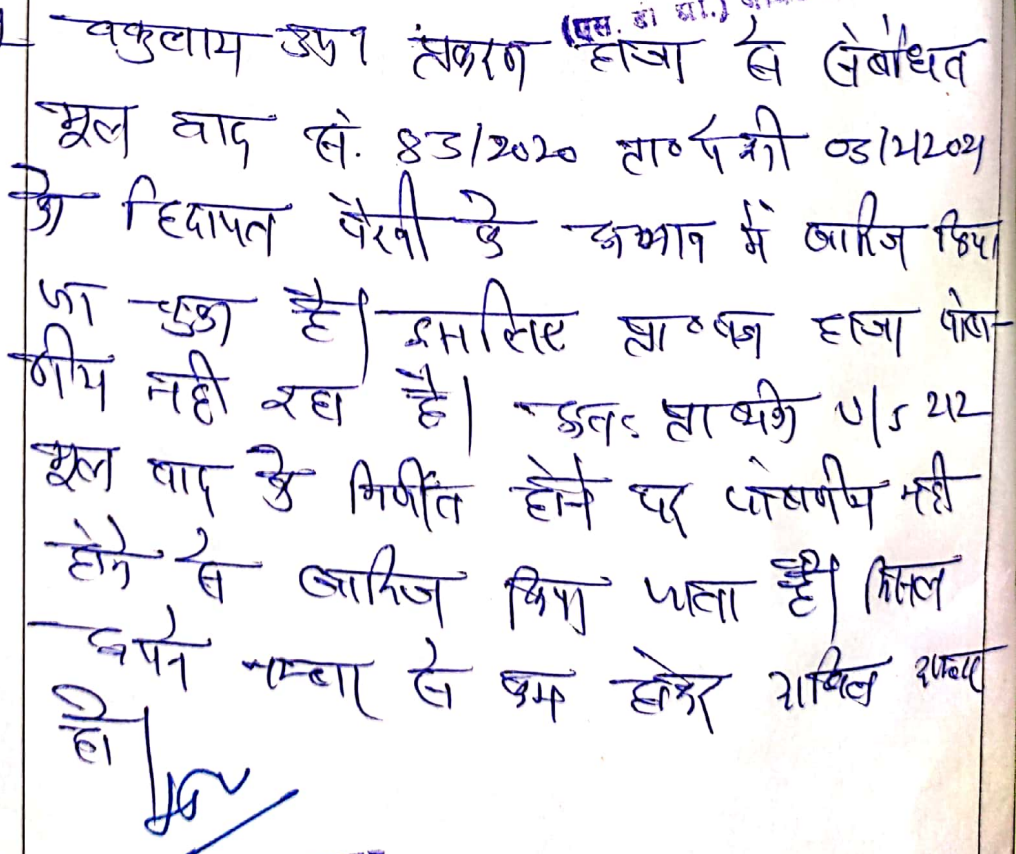 (एस. डी ओ.)
वकुलाय उप० प्रकरण हाजा से संबंधित
मूल वाद सं. 83/2020 प्रा०
को हिदायत पैरवी के अभाव में खारिज किया
जा चुका है। इसलिए प्रा० पत्र हाजा पोष-
णीय नही रहा है। अतः प्रा० पत्र U/S 212
मूल वाद के निर्णीत होने पर पोषणीय नही
होने से खारिज किया जाता है। मिसल
अपने नम्बर से कम होकर दाखिल दफ्तर
हो।